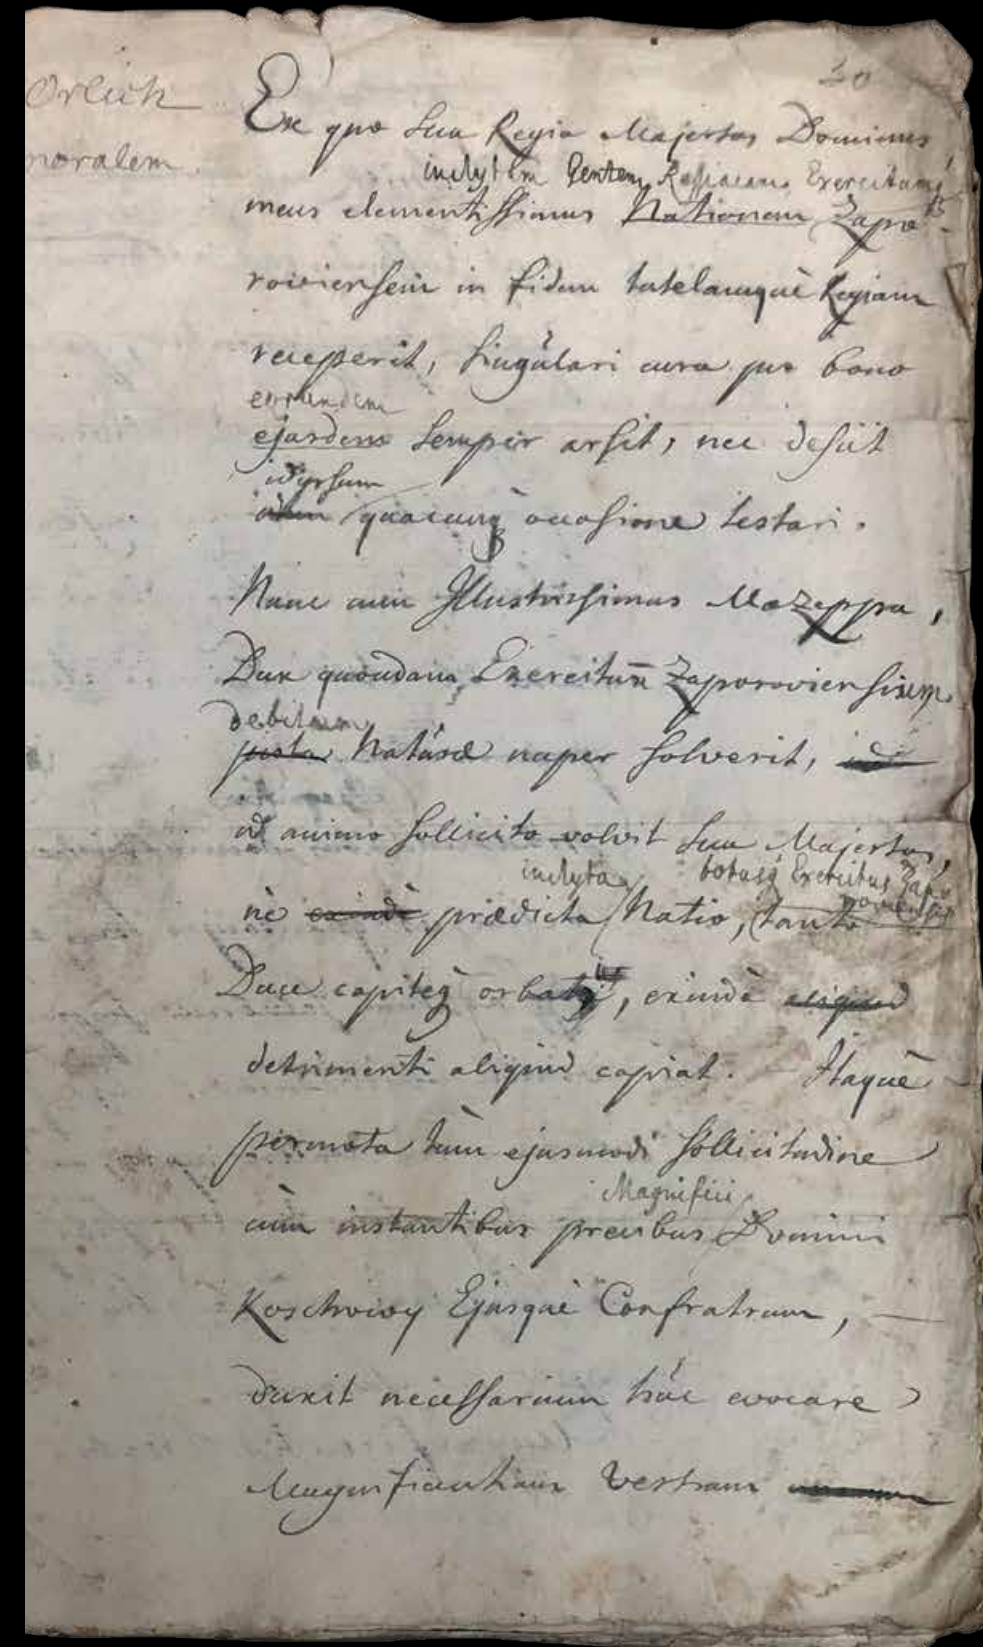 Orlich
noralem.
Ex quo Sua Regia Majestas Dominus
inclytam Gentem Rossiacam Exercitumq
meus clementissimus Nationem Zapo
roviensem in fidem tutelamquè Regiam
receperit, singulari cura pro bono
eorundem
ejusdem semper arsit, nec desiit
idipsum
quacunq occasione testari.
Nunc cum Illustrissimus Mazeppa,
Dux quondam Exercitus Zaporoviensis
debitum
justa Naturæ nuper solverit,
id animo sollicito volvit Sua Majestas,
inclyta totusq Exercitus Zapo
roviensis
nè exinde prædicta Natio, tanto
Duce capiteq orbat, exindè aliquid
detrimenti aliquid capiat. Itaquè
permota tùm ejusmodi sollicitudine
Magnifici
cùm instantibus precibus Domini
Koschowoy Ejusquè Confratrum,
duxit necessarium hùc evocare
Magnificentiam Vestram